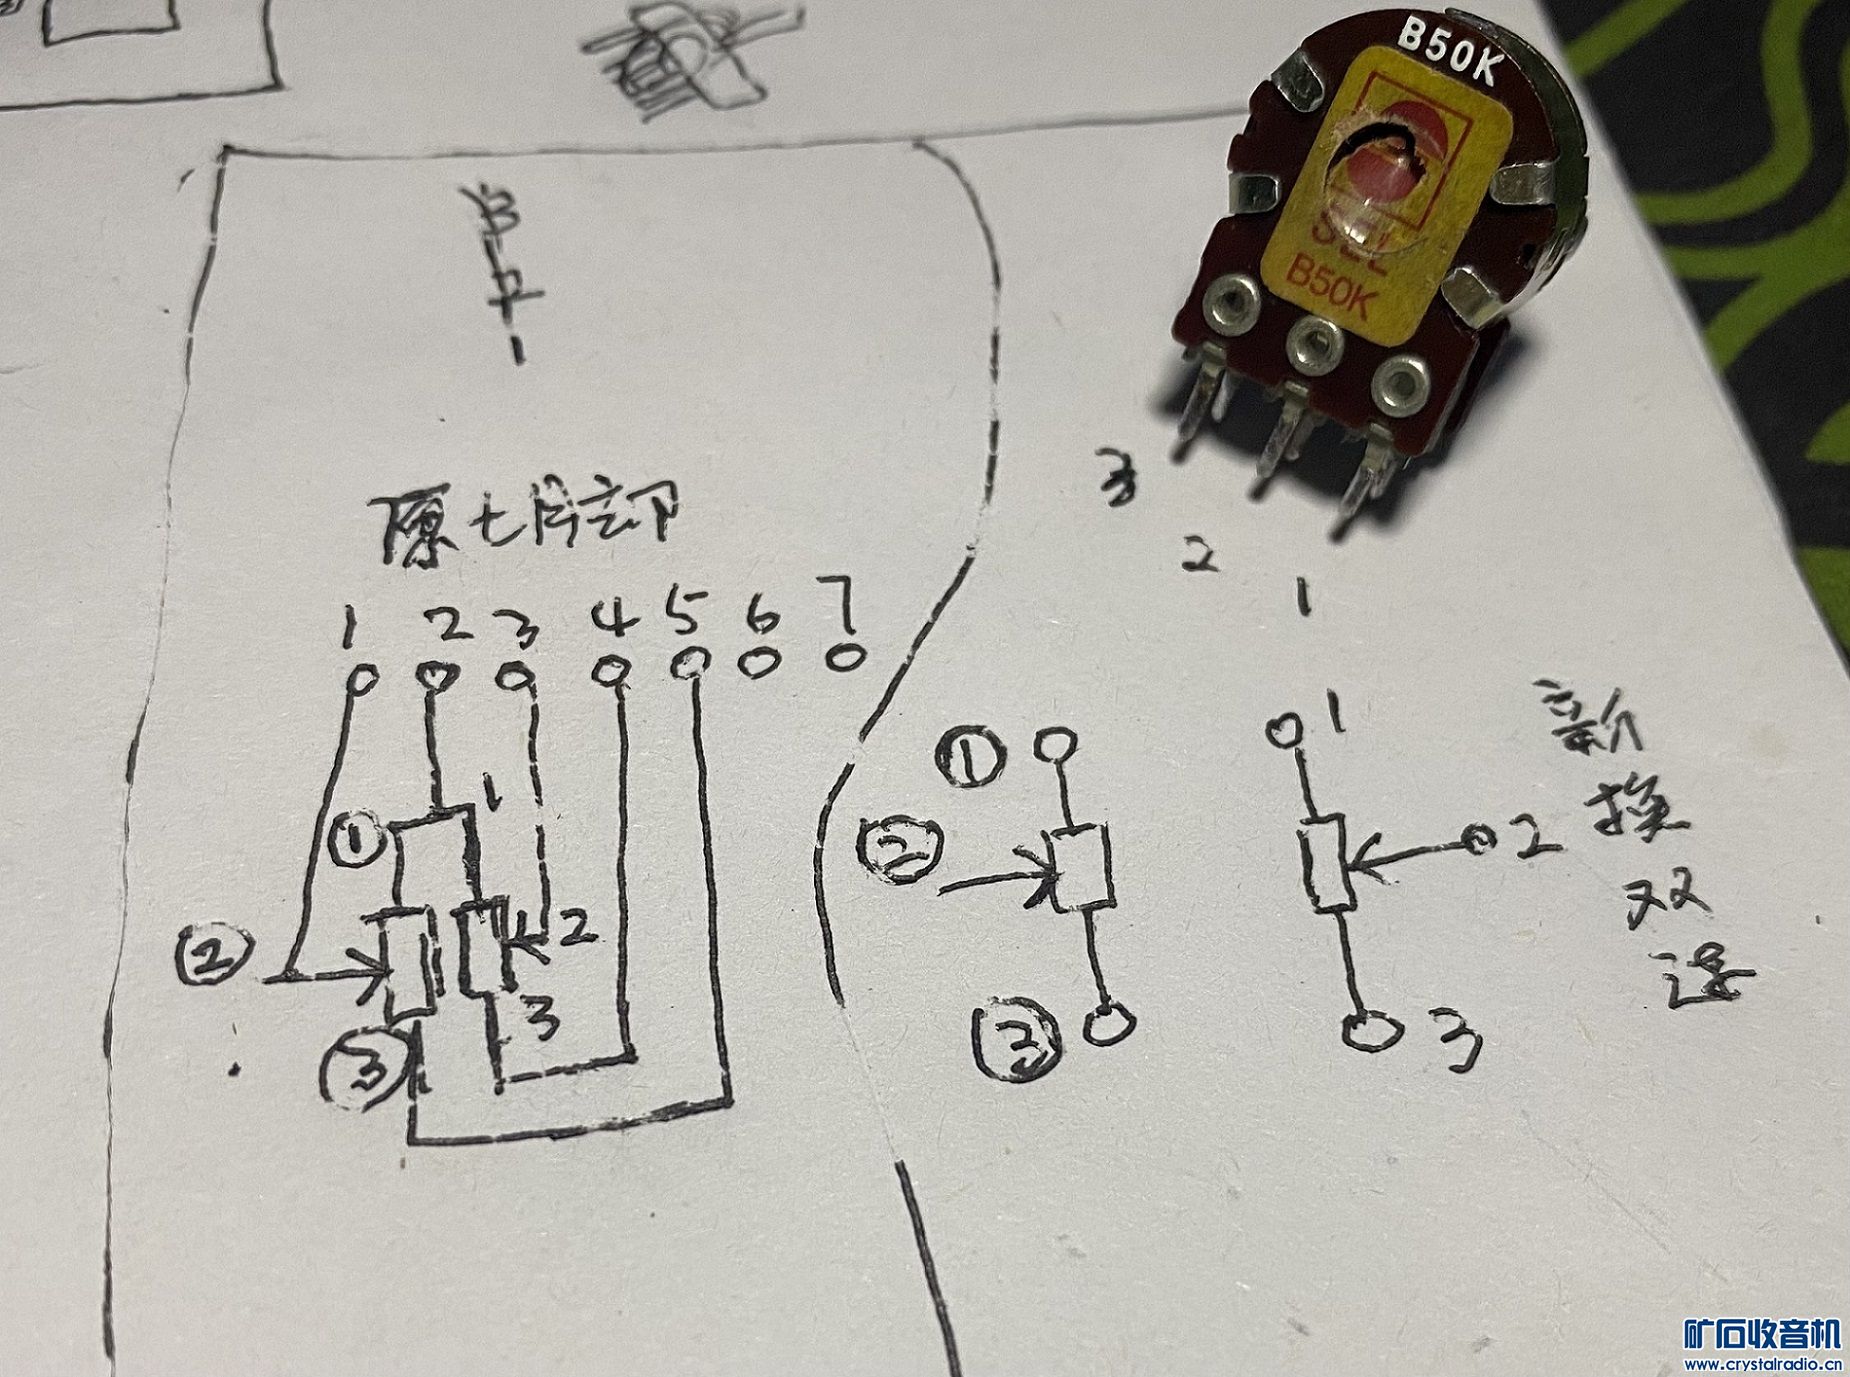 B50K
SEL
B50K
原七片部
1 2 3 4 5 6 7
3
2
1
① 1
② 2
③ 3
① 1
② 2
③ 3
新
换
双
连
矿石收音机
www.crystalradio.cn